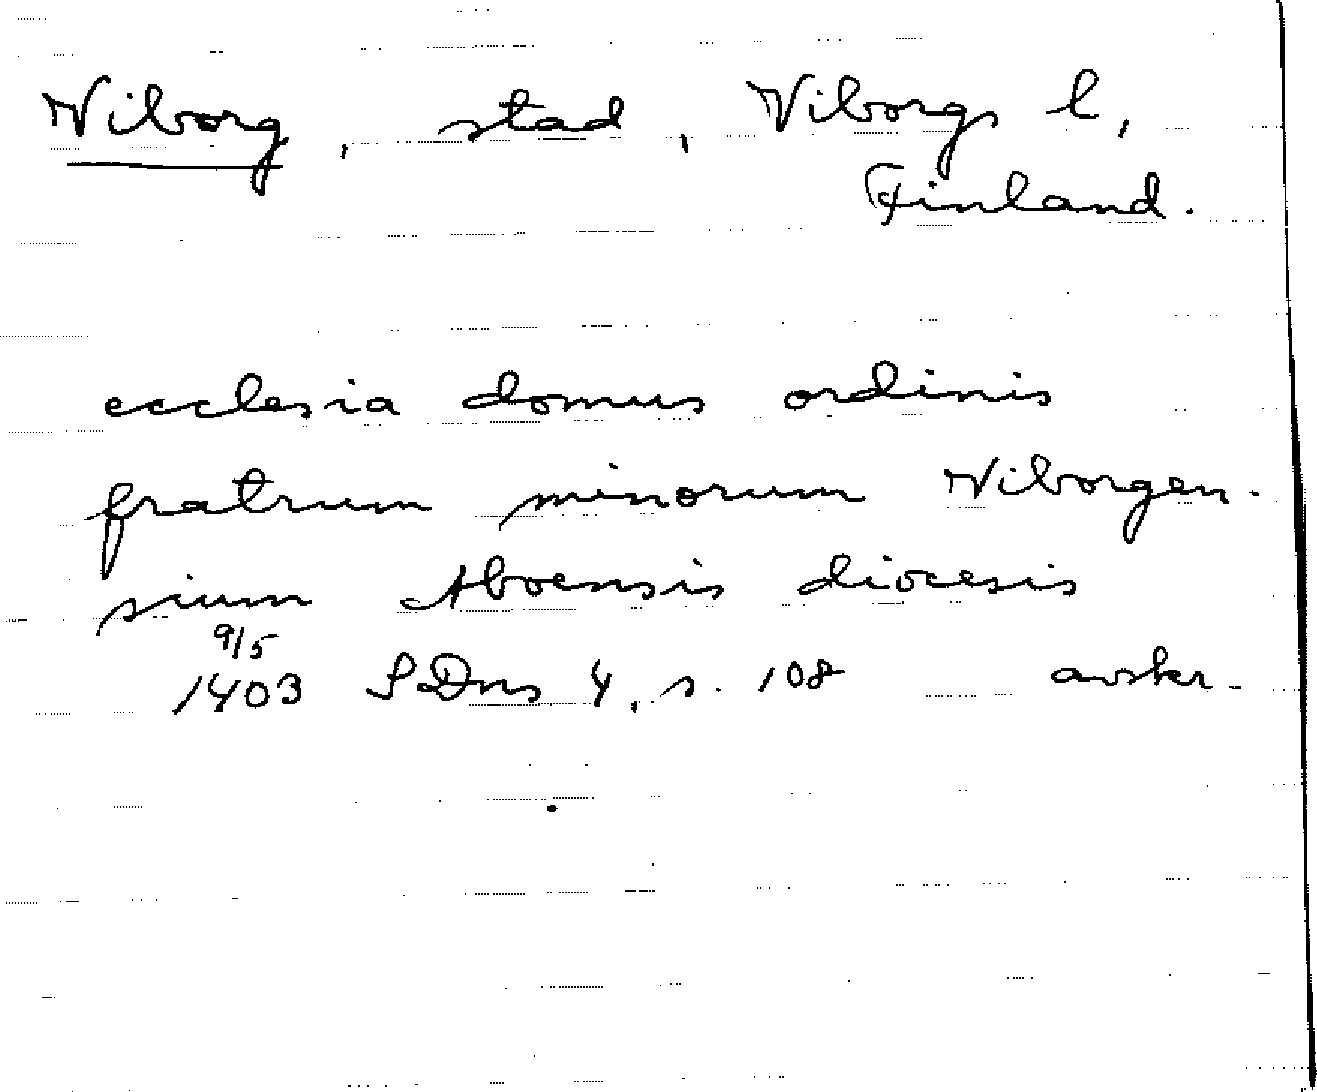 Wiborg, stad, Viborgs l,
Finland.
ecclesia domus ordinis
fratrum minorum Wiborgen-
sium Aboensis diocesis
9/5
1403 SDns 4, s. 108 avskr.